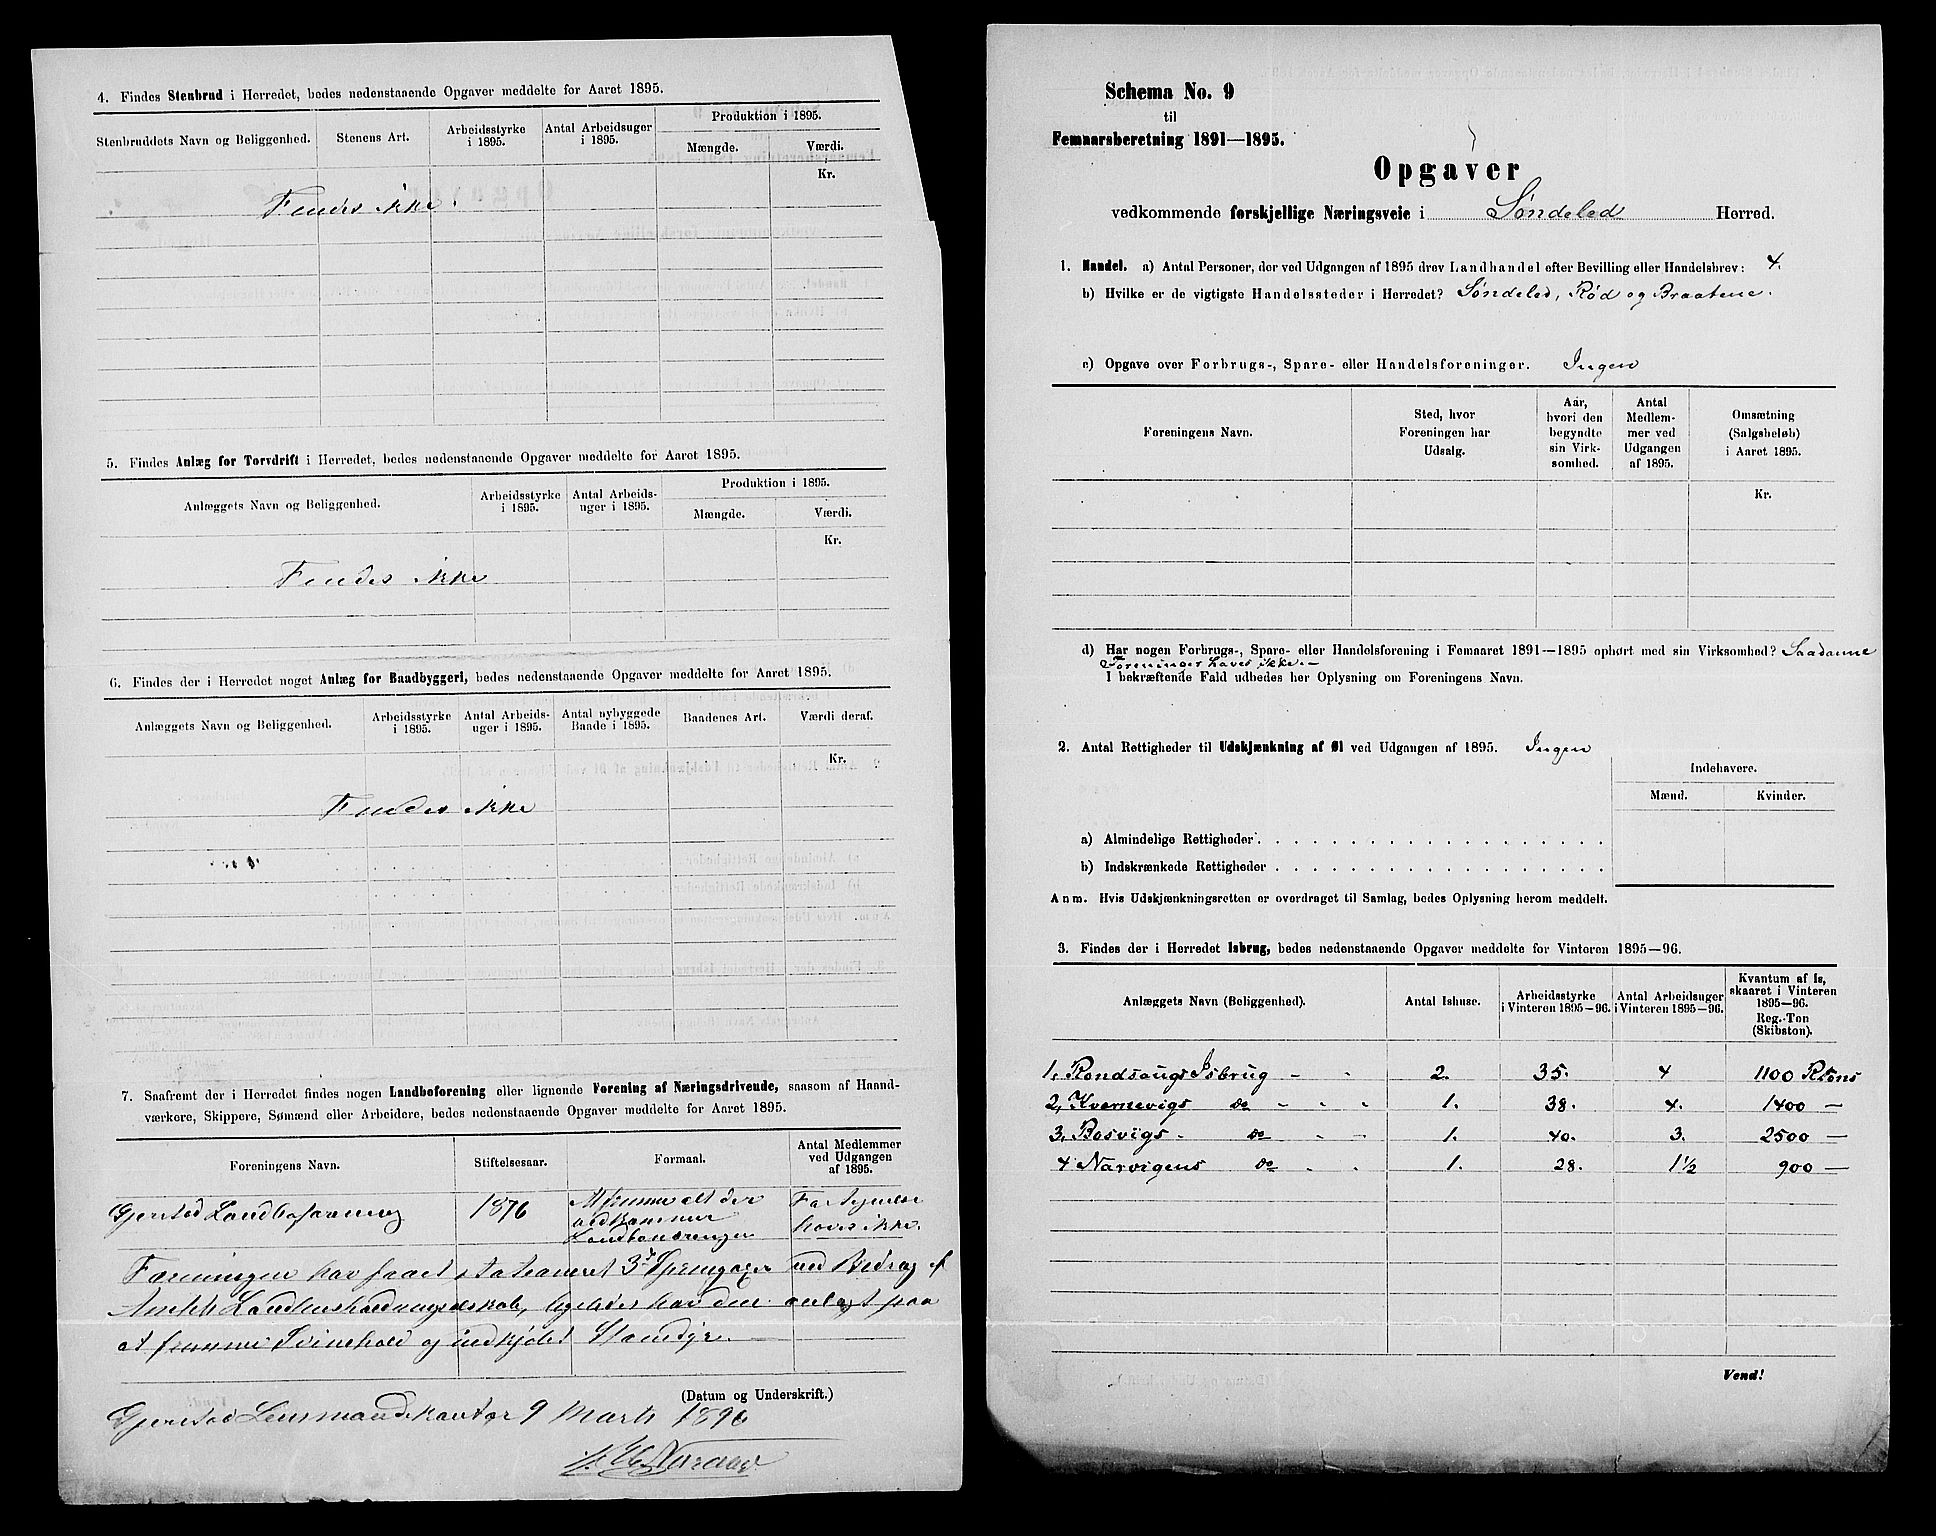 4. Findes Stenbrud i Herredet, bedes nedenstaaende Opgaver meddelte for Aaret 1895.
Stenbruddets Navn og Beliggenhed. Stenens Art. Arbeidsstyrke i 1895. Antal Arbeidsuger i 1895. Produktion i 1895.
Mængde. Værdi.
Kr.
Findes ikke.
5. Findes Anlæg for Torvdrift i Herredet, bedes nedenstaaende Opgaver meddelte for Aaret 1895.
Anlæggets Navn og Beliggenhed. Arbeidsstyrke i 1895. Antal Arbeidsuger i 1895. Produktion i 1895.
Mængde. Værdi.
Kr.
Findes ikke
6. Findes der i Herredet noget Anlæg for Baadbyggeri, bedes nedenstaaende Opgaver meddelte for Aaret 1895.
Anlæggets Navn og Beliggenhed. Arbeidsstyrke i 1895. Antal Arbeidsuger i 1895. Antal nybyggede Baade i 1895. Baadenes Art. Værdi deraf.
Kr.
Findes ikke
7. Saafremt der i Herredet findes nogen Landboforening eller lignende Forening af Næringsdrivende, saasom af Haand-
værkere, Skippere, Sømænd eller Arbeidere, bedes nedenstaaende Opgaver meddelte for Aaret 1895.
Foreningens Navn. Stiftelsesaar. Formaal. Antal Medlemmer ved Udgangen af 1895.
Gjerstad Landboforening 1876 At fremme alt der vedkommer Landbonæringen Fortegnelse haves ikke.
Foreningen har faaet stationeret 3 ved Bidrag af
Amtets Landhusholdningsselskab, ligeledes har den anlagt paa
at fremme Svinehold og indkjøbt Stamdyr.
(Datum og Underskrift.)
Gjerstad Lensmandskontor 9 Marts 1896
Schema No. 9
til
Femaarsberetning 1891—1895.
Opgaver
vedkommende forskjellige Næringsveie i Søndeled Herred.
1. Handel. a) Antal Personer, der ved Udgangen af 1895 drev Landhandel efter Bevilling eller Handelsbrev: 4.
b) Hvilke er de vigtigste Handelssteder i Herredet? Søndeled, Rød og Braatene.
c) Opgave over Forbrugs-, Spare- eller Handelsforeninger. Ingen
Foreningens Navn. Sted, hvor Foreningen har Udsalg. Aar, hvori den begyndte sin Virksomhed. Antal Medlemmer ved Udgangen af 1895. Omsætning (Salgsbeløb) i Aaret 1895.
Kr.
d) Har nogen Forbrugs-, Spare- eller Handelsforening i Femaaret 1891—1895 ophørt med sin Virksomhed? Saadanne
Foreninger haves ikke.—
I bekræftende Fald udbedes her Oplysning om Foreningens Navn.
2. Antal Rettigheder til Udskjænkning af Øl ved Udgangen af 1895. Ingen
Indehavere.
Mænd. Kvinder.
a) Almindelige Rettigheder
b) Indskrænkede Rettigheder
Anm. Hvis Udskjænkningsretten er overdraget til Samlag, bedes Oplysning herom meddelt.
3. Findes der i Herredet Isbrug, bedes nedenstaaende Opgaver meddelte for Vinteren 1895—96.
Anlæggets Navn (Beliggenhed). Antal Ishuse. Arbeidsstyrke i Vinteren 1895—96. Antal Arbeidsuger i Vinteren 1895—96. Kvantum af Is, skaaret i Vinteren 1895—96. Reg.-Ton (Skibston).
1, Rondsougs Isbrug - - 2. 35. 4 1100 Rtons
2, Kvernevigs do - - - 1. 38. 4. 1400 —
3, Bosvigs. do - - 1. 40. 3. 2500 —
4 Narvigens do - - 1. 28. 1½ 900 —
Vend!